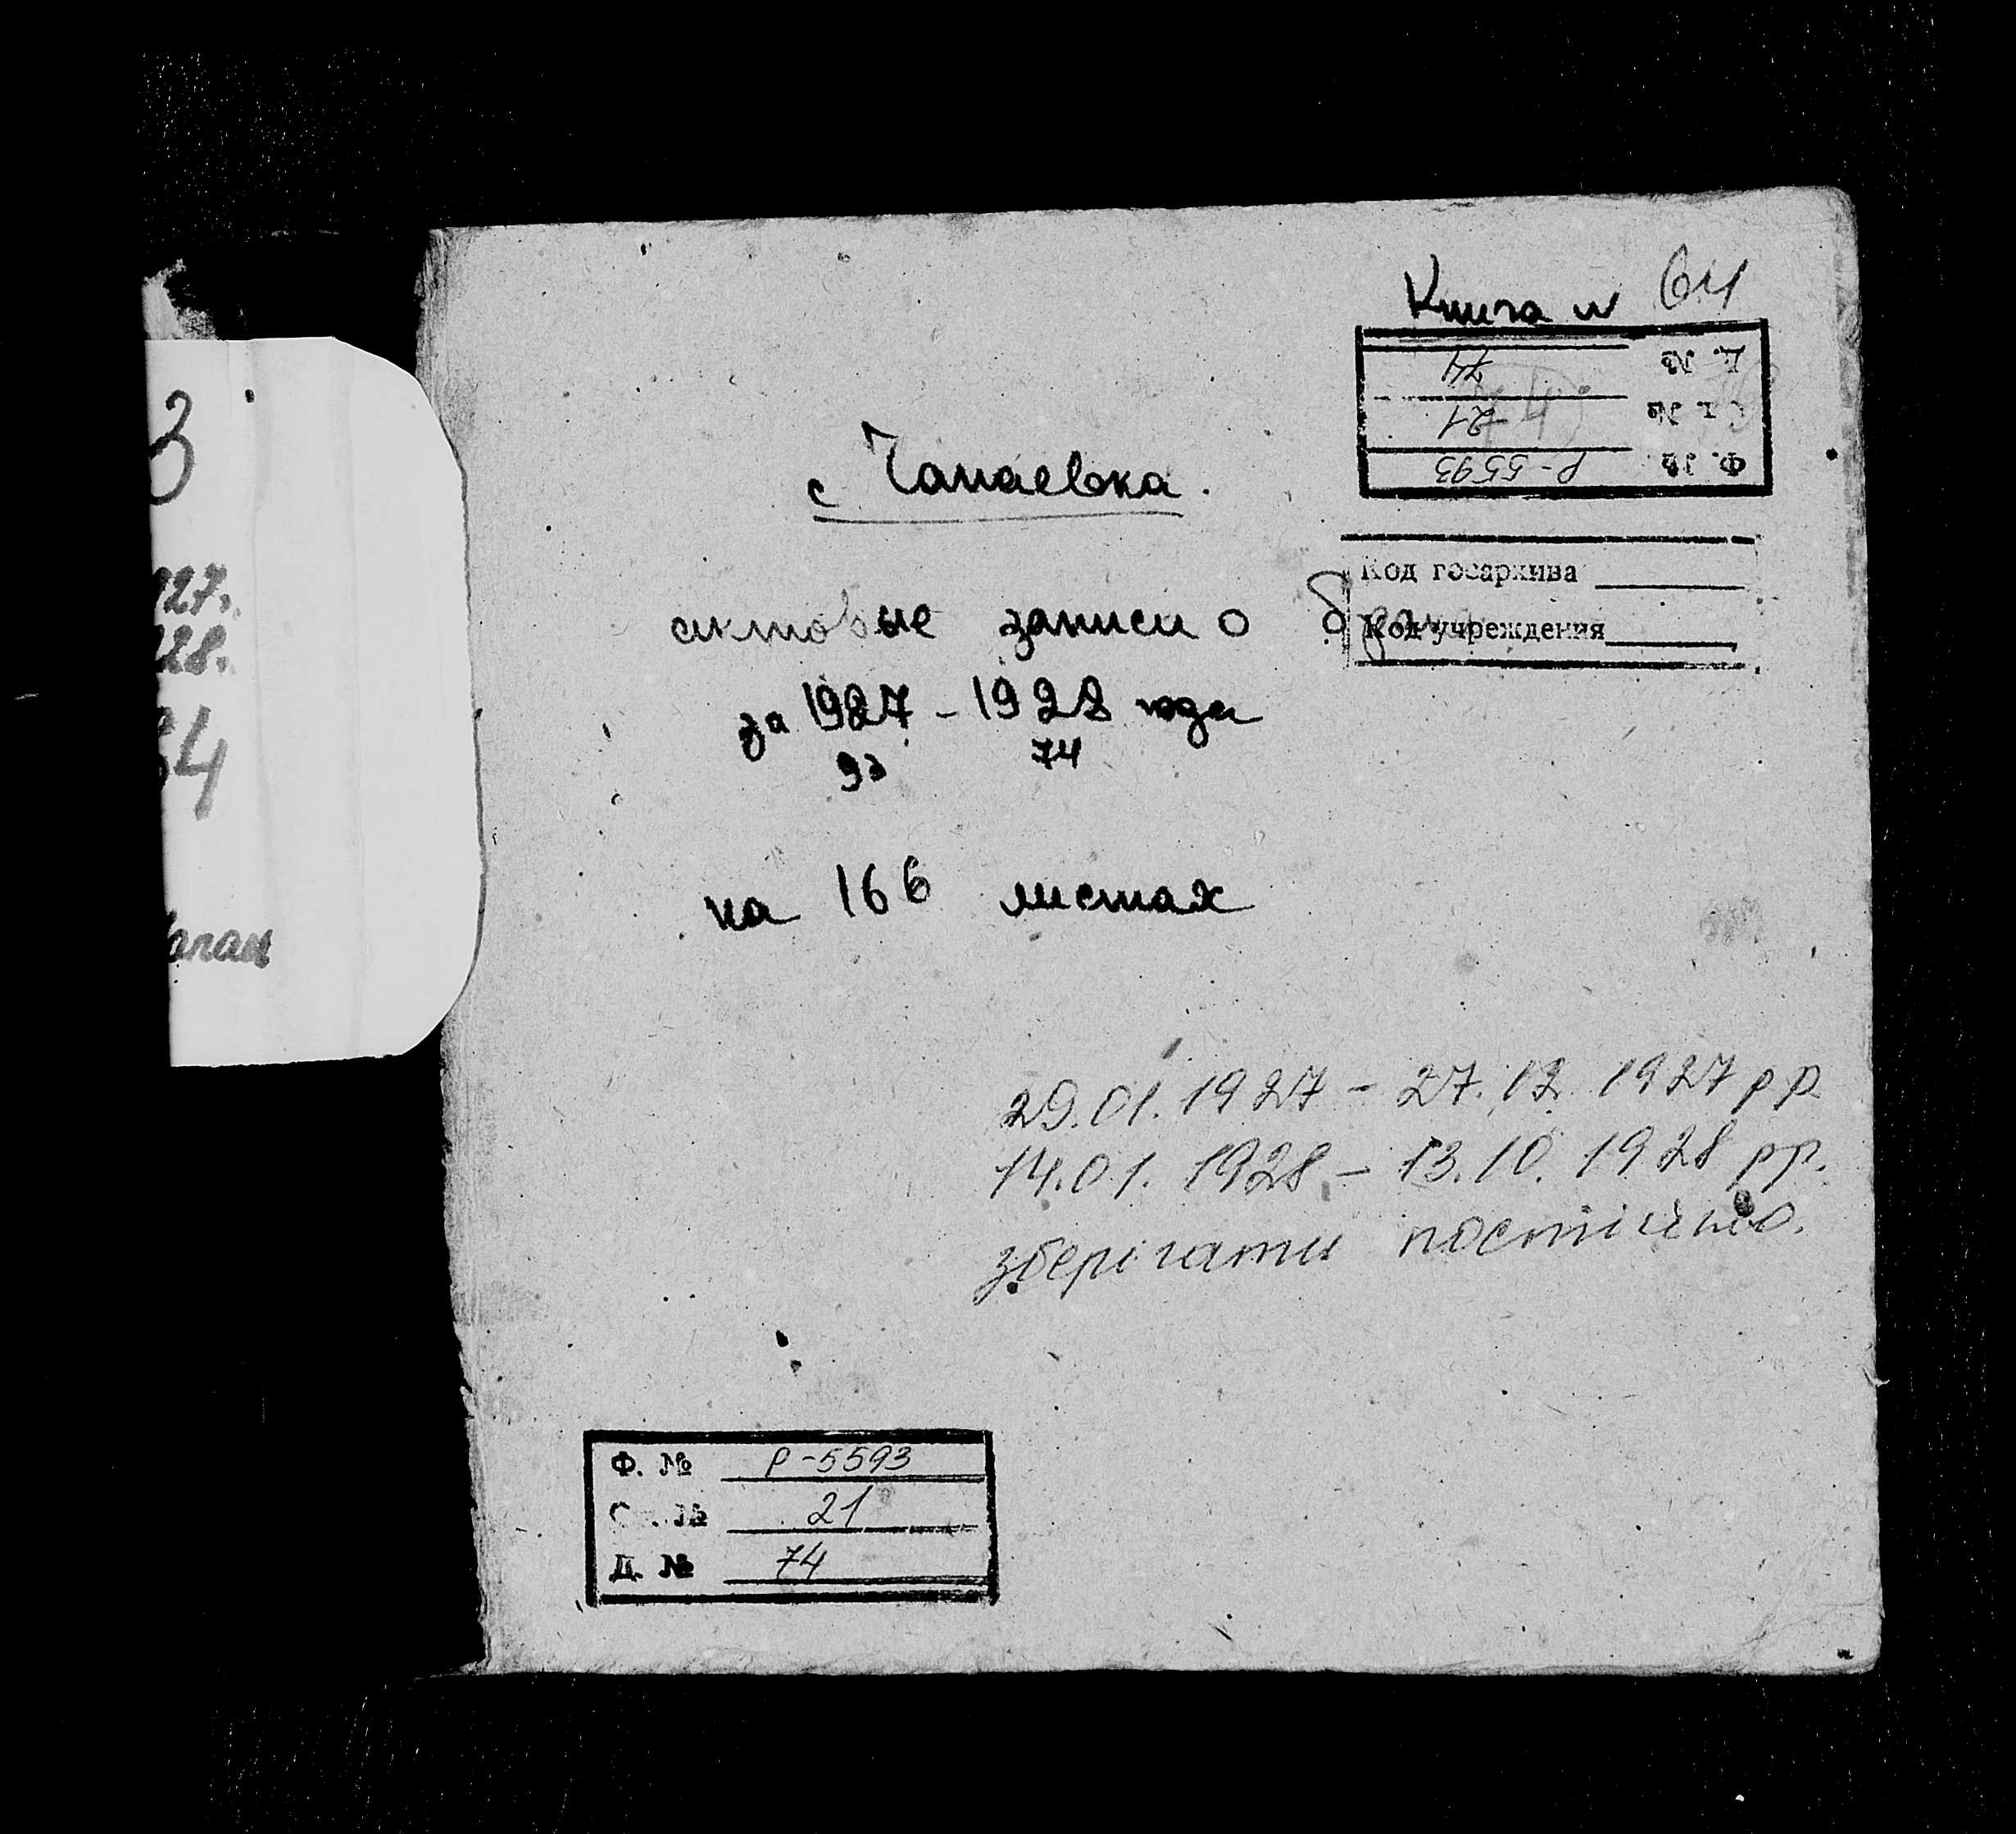 3
27.
28.
4
Книга N 64
Д. № 74
Оп. № 21
Ф. № Р-5593
с Чапаевка.
Код госархива
Код учреждения
актовые записи о браке
за 1927 - 1928 года
92 74
на 166 листах
29.01.1927 - 27.12.1927 рр
14.01.1928 - 13.10.1928 рр.
зберігати постійно.
Ф. № Р-5593
Оп. № 21
Д. № 74